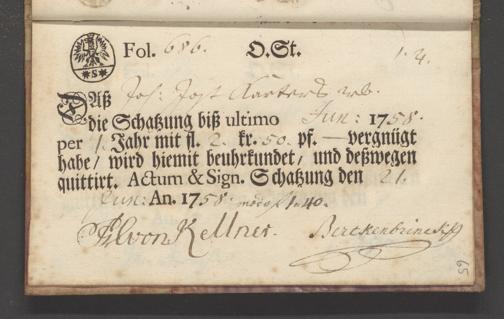 *S*
Fol. 686. O.St. 1.4.
Daß Joh: Jost
die Schatzung biß ultimo Jun: 1758.
per 1. Jahr mit fl. 2. kr. 50. pf. — vergnügt
habe / wird hiemit beuhrkundet / und deßwegen
quittirt. Actum & Sign. Schatzung den 21.
Jun: An. 1758. 1.40.
von Kellner.
65